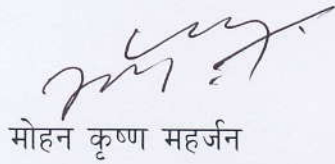 मोहन कृष्ण महर्जन